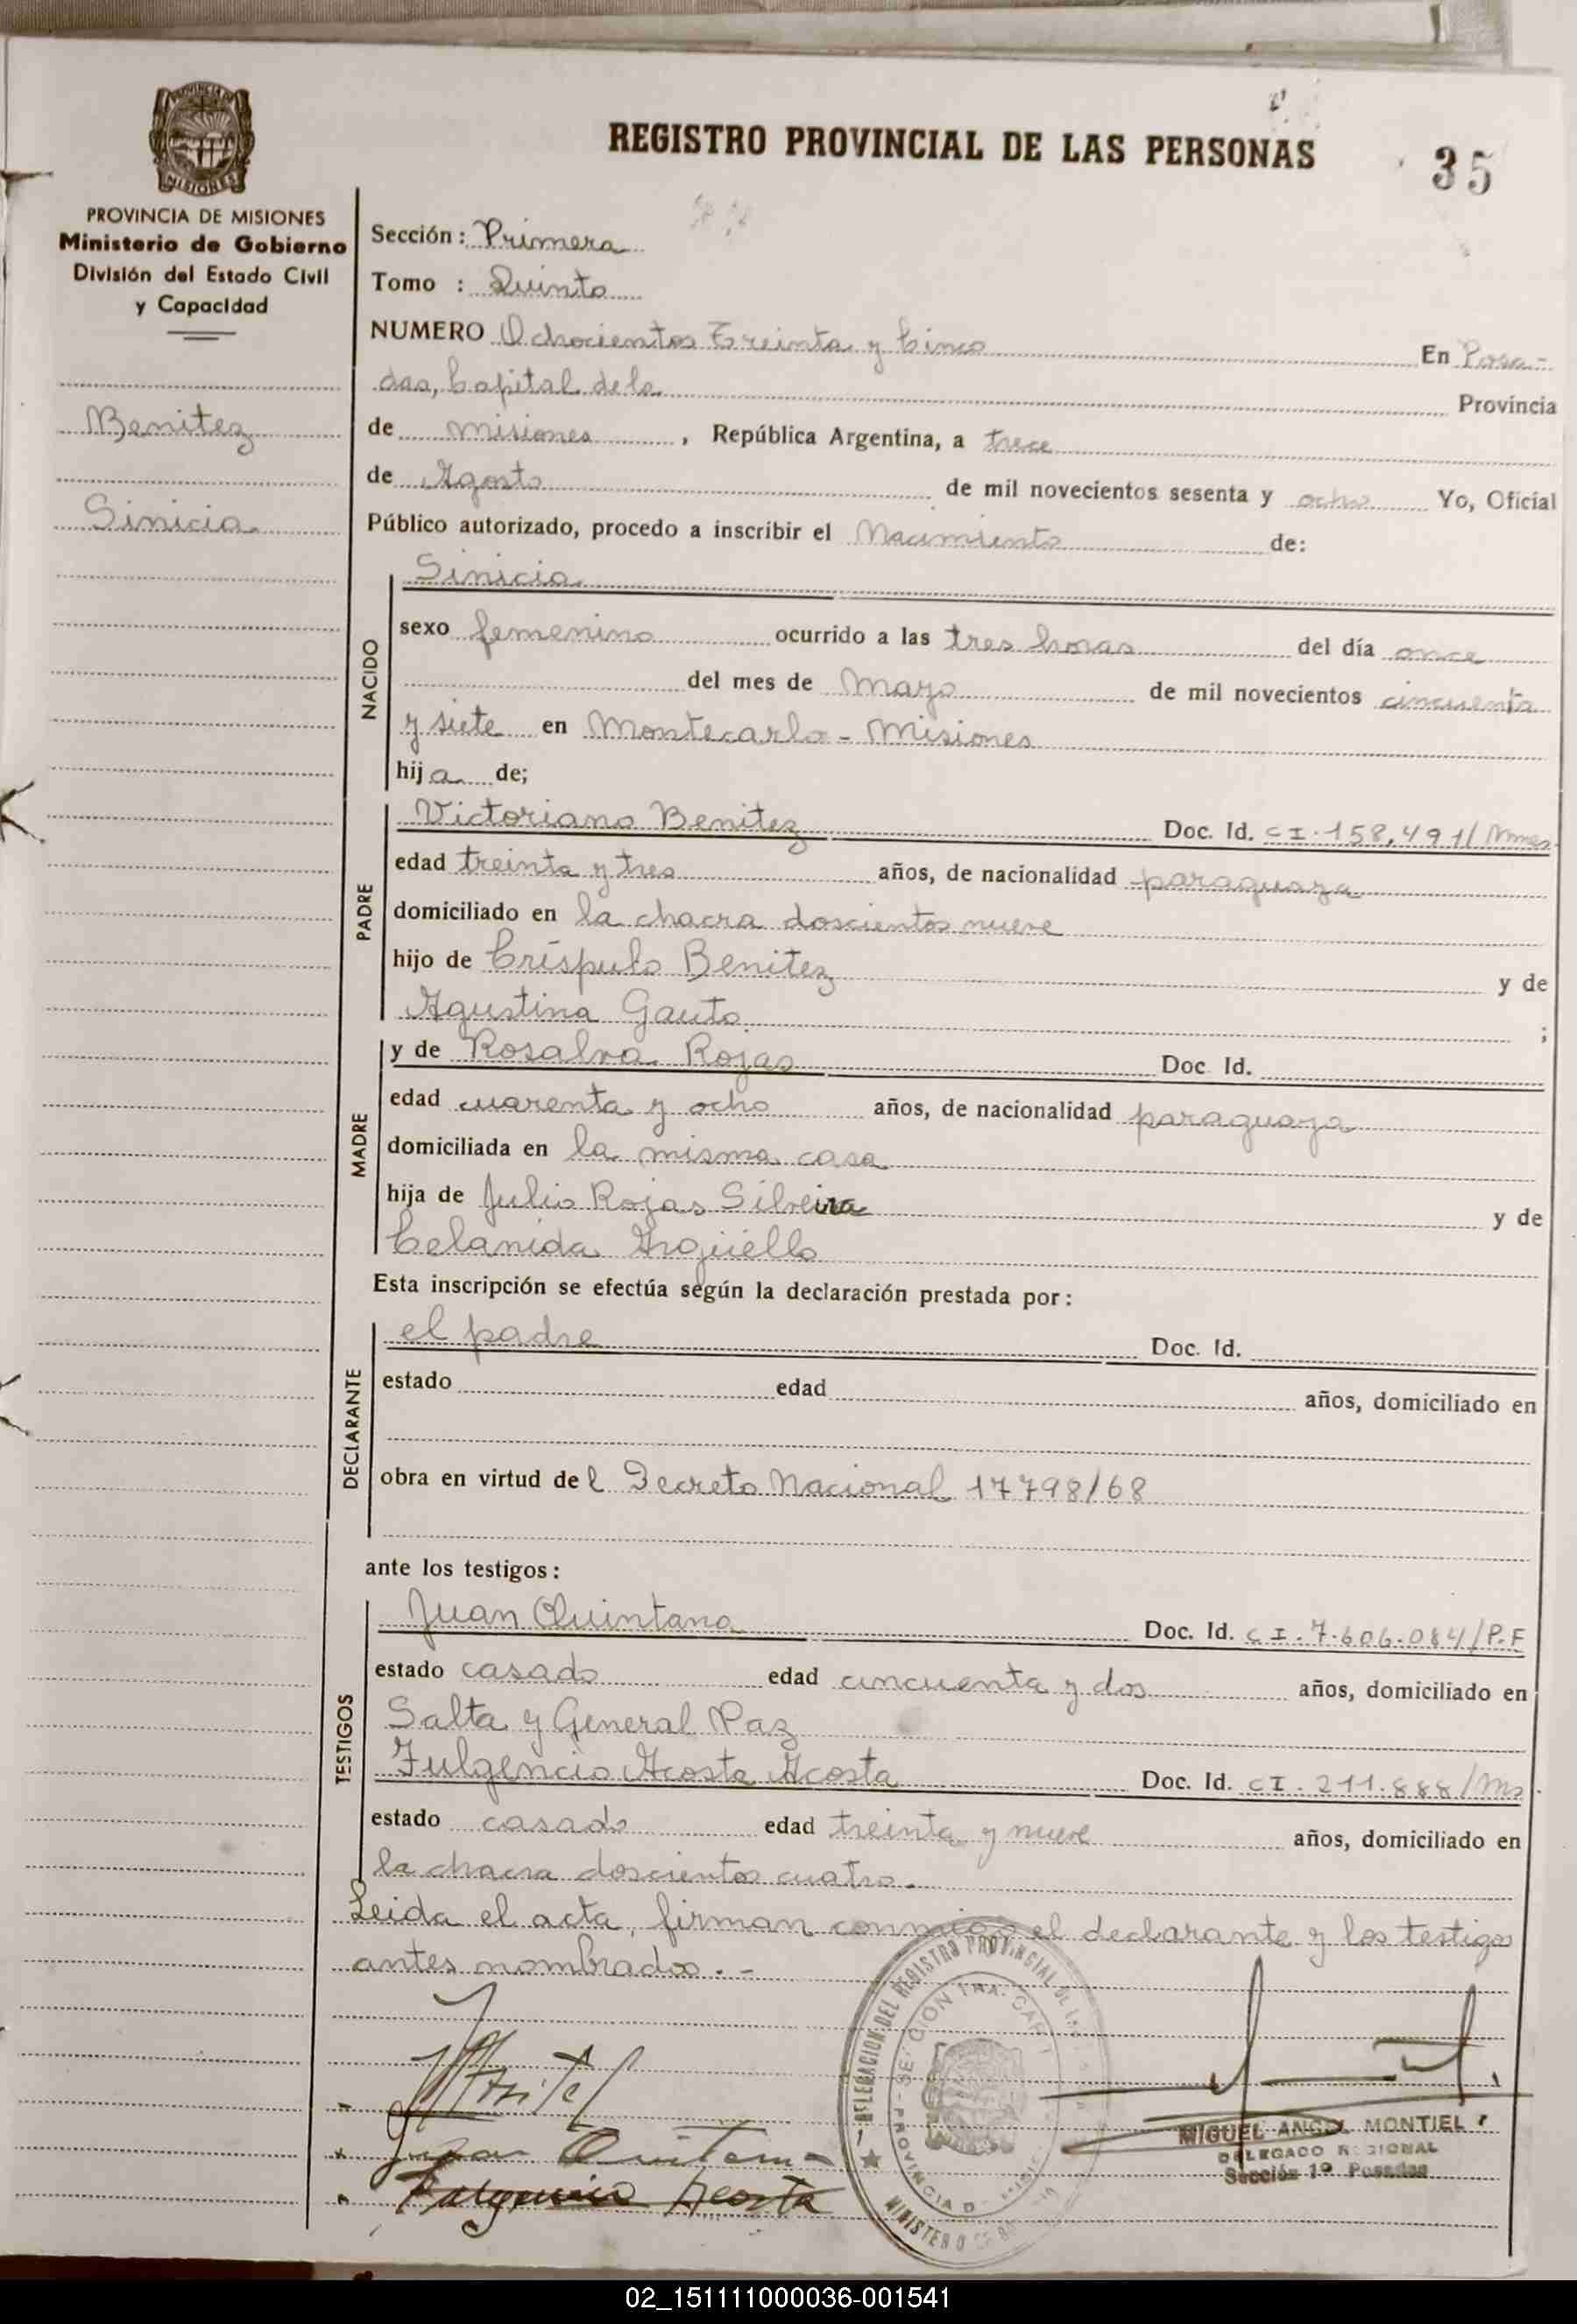 REGISTRO PROVINCIAL DE LAS PERSONAS
35
MISIONES
PROVINCIA DE MISIONES
Ministerio de Gobierno
División del Estado Civil
y Capacidad
Benitez
Sinicia
Sección: Primera
Tomo : Quinto
NUMERO Ochocientos Treinta y Cinco En Posa-
das, Capital de la Provincia
de Misiones, República Argentina, a trece
de Agosto de mil novecientos sesenta y ocho Yo, Oficial
Público autorizado, procedo a inscribir el Nacimiento de:
NACIDO
Sinicia
sexo femenino ocurrido a las tres horas del día once
del mes de Mayo de mil novecientos cincuenta
y siete en Montecarlo - Misiones
hija de;
PADRE
Victoriano Benitez Doc. Id. CI.158,491/Mnes
edad treinta y tres años, de nacionalidad paraguaya
domiciliado en la chacra doscientos nueve
hijo de Críspulo Benitez y de
Agustina Gauto ;
MADRE
y de Rosalva Rojas Doc Id.
edad cuarenta y ocho años, de nacionalidad paraguaya
domiciliada en la misma casa
hija de Julio Rojas Silveira y de
Celanida Argüello
Esta inscripción se efectúa según la declaración prestada por:
DECLARANTE
el padre Doc. Id.
estado edad años, domiciliado en
obra en virtud del Decreto Nacional 17798/68
ante los testigos:
TESTIGOS
Juan Quintana Doc. Id. CI.7.606.084/P.F
estado casado edad cincuenta y dos años, domiciliado en
Salta y General Paz
Fulgencio Acosta Acosta Doc. Id. CI.211.888/Ms
estado casado edad treinta y nueve años, domiciliado en
la chacra doscientos cuatro.
Leida el acta, firman conmigo el declarante y los testigos
antes nombrados.-
DELEGACION DEL REGISTRO PROVINCIAL DE
MINISTERIO DE
MIGUEL ANGEL MONTIEL
DELEGADO REGIONAL
Sección 1º Posadas
Juan Quintana
Fulgencio Acosta
02_151111000036-001541